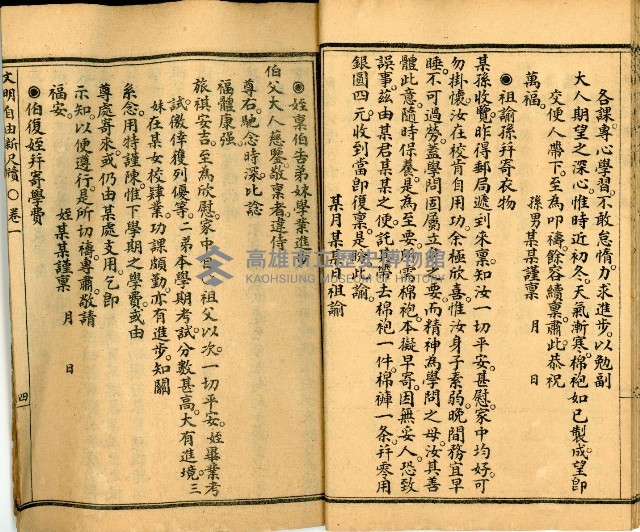 各課專心學習。不敢怠惰。力求進步。以勉副
大人期望之深心。惟時近初冬。天氣漸寒。棉袍如已製成。望即
交使人帶下。至為叩禱。餘容續稟。肅此恭祝
萬福。
孫男某某謹稟 月 日
◉祖諭孫幷寄衣物
某孫收覽。昨得郵局遞到來稟。知汝一切平安。甚慰。家中均好。可
勿掛懷。汝在校肯自用功。余極欣喜。惟汝身子素弱。晚間務宜早
睡。不可過勞。蓋學問固屬立身之要。而精神為學問之母。汝其善
體此意。隨時保養是為至要。需棉袍。本擬早寄。因無妥人。恐致
誤事。茲由某君某某之便。託帶去棉袍一件。棉褲一條。幷寒用
銀圓四元。收到當即復稟。是盼。此諭。
某月某日祖諭
◉姪稟伯告弟妹學業進
伯父大人慈鑒。敬稟者。違侍
尊右。馳念時深。比諗
福體康强。
旅祺安吉。至為欣慰。家中自祖父以次。一切平安。姪畢業考
試。徼倖獲列優等。二弟本學期考試分數甚高。大有進境。三
妹在某女校肄業。功課頗勤。亦有進步。知關
系念。用特謹陳。惟下學期之學費。或由
尊處寄來。或仍由某處支用。乞即
示知。以便遵行。是所切禱。專肅敬請
福安。
姪某某謹稟 月 日
◉伯復姪幷寄學費
文明自由新尺牘 ○ 卷一
四
高雄市立歷史博物館
KAOHSIUNG MUSEUM OF HISTORY